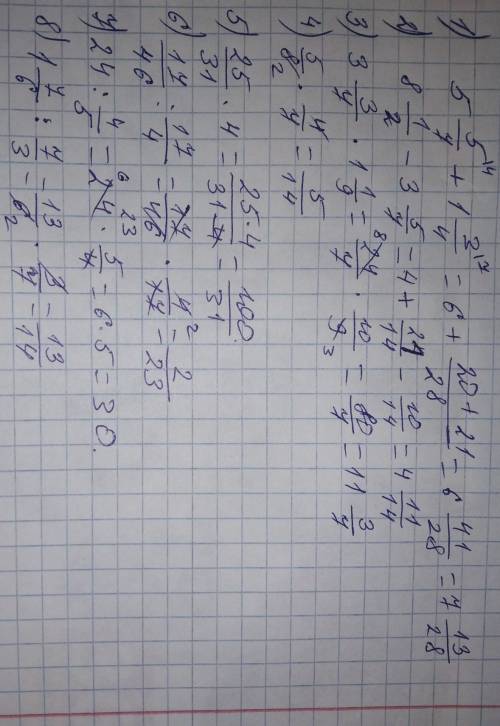 1) 5 5/7 \4 + 1 3/4 \7 = 6 + (20+21)/28 = 6 41/28 = 7 13/28
2) 8 1/2 - 3 5/7 = 4 + 21/14 - 10/14 = 4 11/14
3) 3 3/7 · 1 1/9 = 24/7 8 · 10/9 3 = 80/7 = 11 3/7
4) 5/8 2 · 4/7 = 5/14
5) 25/31 · 4 = 25·4/31 = 100/31
6) 17/46 : 17/4 = 17/46 23 · 4/17 2 = 2/23
7) 24 : 4/5 = 24 6 · 5/4 = 6·5 = 30.
8) 1 7/6 : 7/3 = 13/6 2 · 3/7 = 13/14